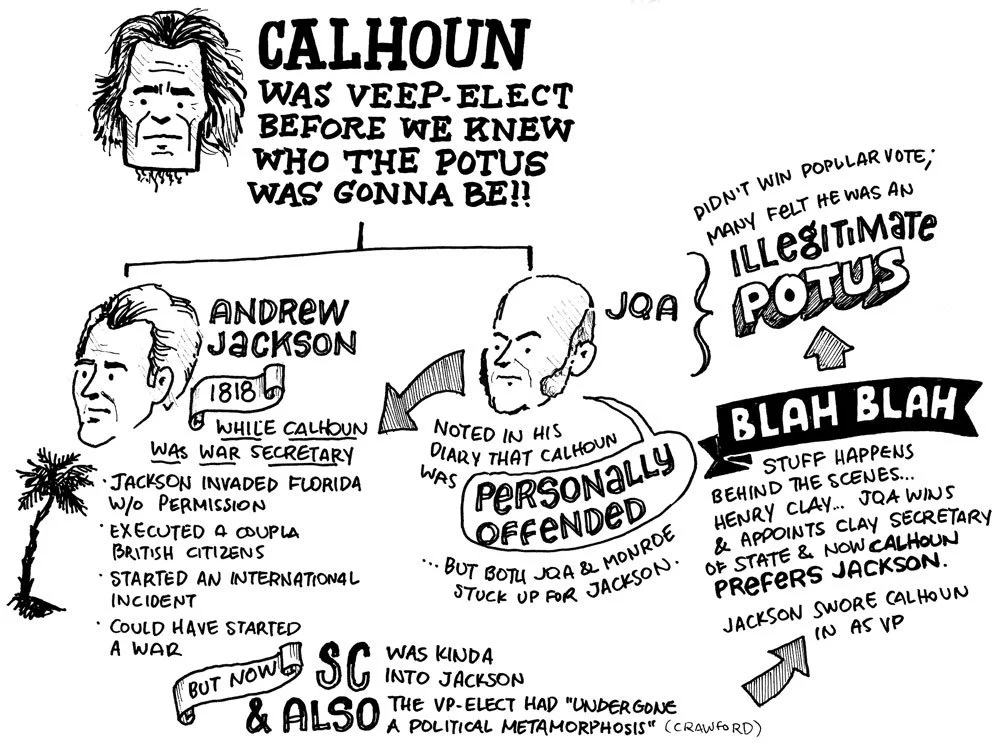 CALHOUN
WAS VEEP-ELECT
BEFORE WE KNEW
WHO THE POTUS
WAS GONNA BE!!
ANDREW
JACKSON
1818
WHILE CALHOUN
WAS WAR SECRETARY
· JACKSON INVADED FLORIDA
W/O PERMISSION
· EXECUTED A COUPLA
BRITISH CITIZENS
· STARTED AN INTERNATIONAL
INCIDENT
· COULD HAVE STARTED
A WAR
JQA
NOTED IN HIS
DIARY THAT CALHOUN
WAS
PERSONALLY
OFFENDED
...BUT BOTH JQA & MONROE
STUCK UP FOR JACKSON.
BUT NOW
SC
WAS KINDA
INTO JACKSON
& ALSO
THE VP-ELECT HAD "UNDERGONE
A POLITICAL METAMORPHOSIS" (CRAWFORD)
JACKSON SWORE CALHOUN
IN AS VP
BLAH BLAH
STUFF HAPPENS
BEHIND THE SCENES...
HENRY CLAY... JQA WINS
& APPOINTS CLAY SECRETARY
OF STATE & NOW CALHOUN
PREFERS JACKSON.
DIDN'T WIN POPULAR VOTE;
MANY FELT HE WAS AN
ILLEGITIMATE
POTUS